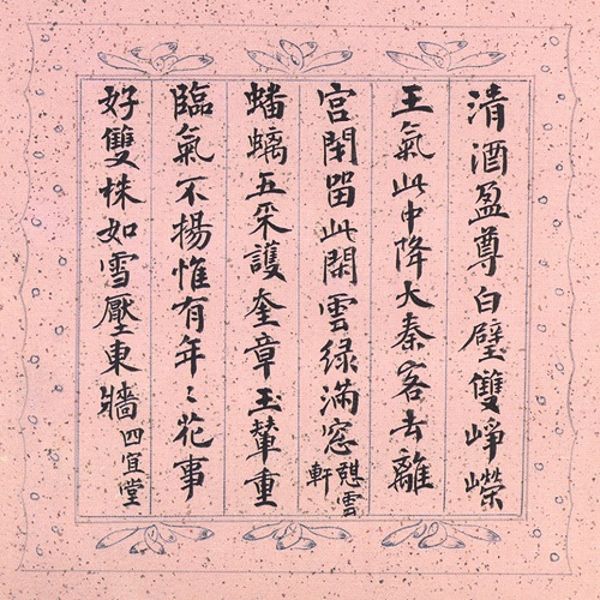 清酒盈尊白璧雙崢嶸
王氣此中降大秦客去離
宮閉留此閑雲緑滿窓憩雲軒
蟠螭五采護奎章玉輦重
臨氣不揚惟有年〻花事
好雙株如雪壓東牆四宜堂